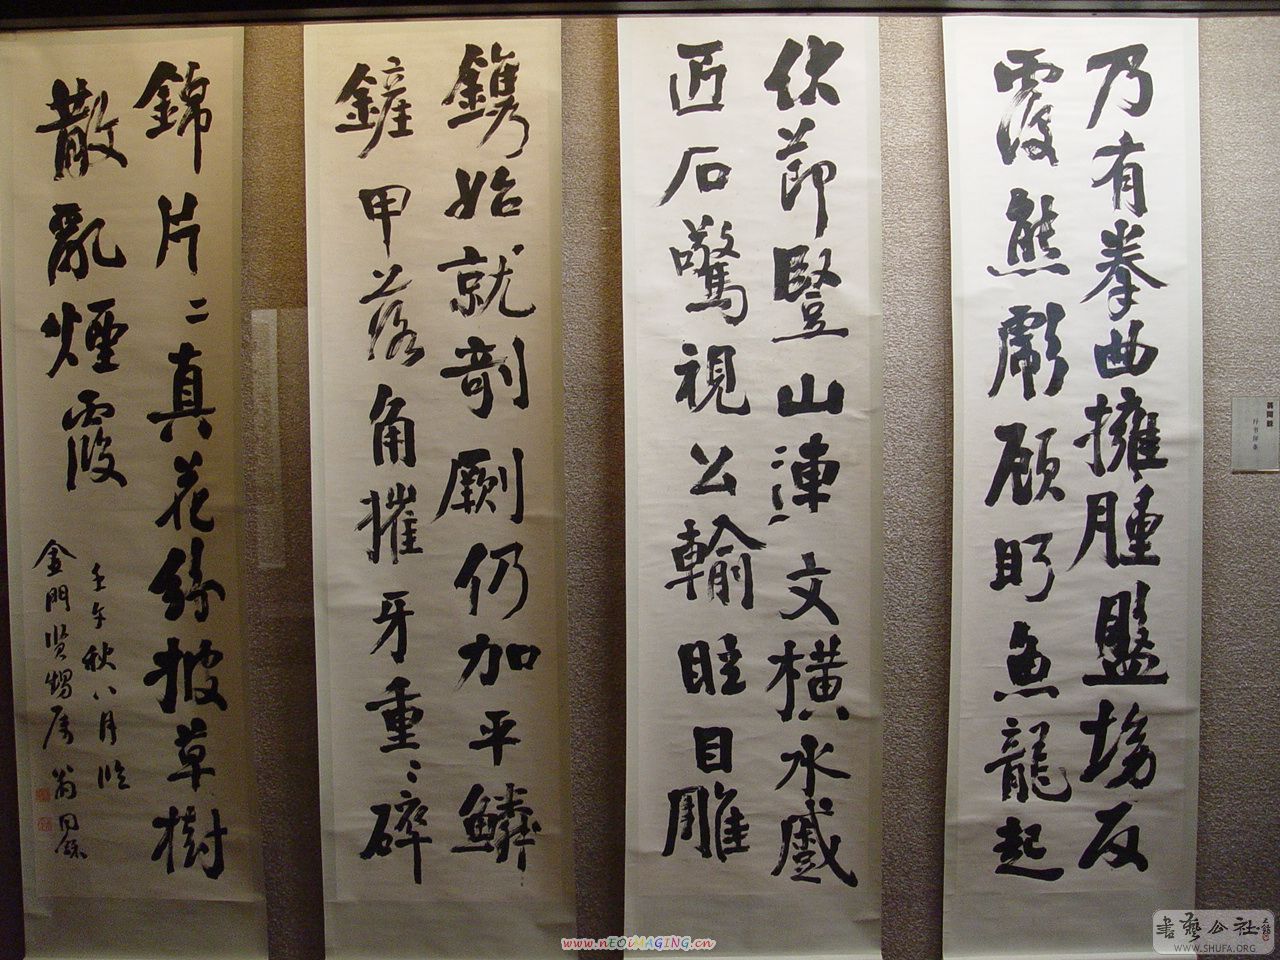 乃有拳曲擁腫盤坳反
覆熊彪顧盻魚龍起
伏節竪山連文橫水蹙
匠石驚視公輸眩目雕
鐫始就剞劂仍加平鱗
鏟甲落角摧牙重〻碎
錦片〻真花紛披草樹
散亂煙霞
壬午秋八月臨
金門賢甥屬 翁同龢
翁同龢
行书屏条
書藝公社
WWW.SHUFA.ORG
www.nEOiMAGING.cn